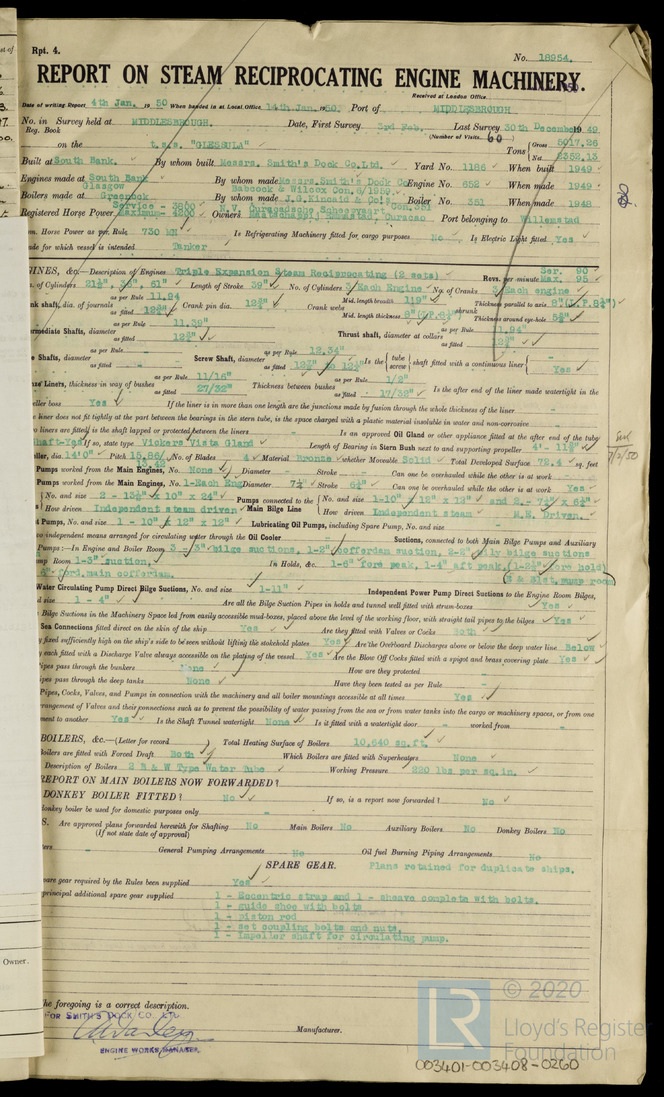 Rpt. 4.
No. 18954.
REPORT ON STEAM RECIPROCATING ENGINE MACHINERY.
Received at London Office
Date of writing Report 4th Jan. 1950 When handed in at Local Office 14th Jan. 1950 Port of MIDDLESBROUGH
No. in Survey held at MIDDLESBROUGH. Date, First Survey 3rd Feb. Last Survey 30th December 1949
Reg. Book (Number of Visits 60)
on the t.s.s. "GLESSULA" Tons Gross 5017.26 Net 2352.13
Built at South Bank. By whom built Messrs. Smith's Dock Co.Ltd. Yard No. 1186 When built 1949
Engines made at South Bank By whom made Messrs. Smith's Dock Co Engine No. 652 When made 1949
Glasgow Babcock & Wilcox Con.6/1959.
Boilers made at Greenock By whom made J.G.Kincaid & Co's. Boiler No. 351 When made 1948
Service - 3800 Con.351
Registered Horse Power Maximum- 4200 Owners Curacao Port belonging to Willemstad
Horse Power as per Rule 730 MN Is Refrigerating Machinery fitted for cargo purposes No Is Electric Light fitted Yes
for which vessel is intended Tanker
GINES, &c.—Description of Engines Triple Expansion Steam Reciprocating (2 sets) Revs. per minute Ser. 90 Max. 95
of Cylinders 61" Length of Stroke 39" No. of Cylinders 3 Each Engine No. of Cranks 3 Each engine
shaft, dia. of journals as per Rule 11.94 as fitted Crank pin dia. 12¾" Crank webs Mid. length breadth Mid. length thickness shrunk Thickness parallel to axis Thickness around eye-hole
mediate Shafts, diameter as per Rule 11.39" as fitted 12¾" Thrust shaft, diameter at collars as per Rule 11.94" as fitted 12¾"
Shafts, diameter as per Rule as fitted Screw Shaft, diameter as per Rule 12.34" as fitted Is the { tube screw } shaft fitted with a continuous liner Yes
Liners, thickness in way of bushes as per Rule 11/16" as fitted 27/32" Thickness between bushes as per Rule 1/2" as fitted 17/32" Is the after end of the liner made watertight in the
eller boss Yes If the liner is in more than one length are the junctions made by fusion through the whole thickness of the liner -
liner does not fit tightly at the part between the bearings in the stern tube, is the space charged with a plastic material insoluble in water and non-corrosive -
liners are fitted, is the shaft lapped or protected between the liners - Is an approved Oil Gland or other appliance fitted at the after end of the tube
shaft-Yes If so, state type Vickers Vista Gland Length of Bearing in Stern Bush next to and supporting propeller
ller, dia. 14'0" Pitch No. of Blades 4 Material Bronze whether Moveable Solid Total Developed Surface 72.4 sq. feet
Pumps worked from the Main Engines, No. None Diameter - Stroke - Can one be overhauled while the other is at work -
Pumps worked from the Main Engines, No. 1-Each Eng Diameter Stroke Can one be overhauled while the other is at work Yes
No. and size 2 - 13½" x 10" x 24" Pumps connected to the Main Bilge Line { No. and size 1-10" x 12" x 12" and 2 - 7½" x 6½"
How driven Independent steam driven How driven Independent steam M.E. Driven.
Pumps, No. and size 1 - 10" x 12" x 12" Lubricating Oil Pumps, including Spare Pump, No. and size. -
independent means arranged for circulating water through the Oil Cooler Suctions, connected to both Main Bilge Pumps and Auxiliary
Pumps:—In Engine and Boiler Room 3 - 3" bilge suctions, 1-2" cofferdam suction, 2-2" oily bilge suctions
Room 1-3" suction, In Holds, &c. 1-6" fore peak, 1-4" aft peak,
ford.main cofferdam.
Water Circulating Pump Direct Bilge Suctions, No. and size 1-11" Independent Power Pump Direct Suctions to the Engine Room Bilges,
size 1 - 4" Are all the Bilge Suction Pipes in holds and tunnel well fitted with strum-boxes Yes
Bilge Suctions in the Machinery Space led from easily accessible mud-boxes, placed above the level of the working floor, with straight tail pipes to the bilges Yes
Sea Connections fitted direct on the skin of the ship Yes Are they fitted with Valves or Cocks Both
fixed sufficiently high on the ship's side to be seen without lifting the stokehold plates Yes Are the Overboard Discharges above or below the deep water line Below
each fitted with a Discharge Valve always accessible on the plating of the vessel Yes Are the Blow Off Cocks fitted with a spigot and brass covering plate Yes
ipes pass through the bunkers None How are they protected -
ipes pass through the deep tanks None Have they been tested as per Rule -
Pipes, Cocks, Valves, and Pumps in connection with the machinery and all boiler mountings accessible at all times Yes
rrangement of Valves and their connections such as to prevent the possibility of water passing from the sea or from water tanks into the cargo or machinery spaces, or from one
ment to another Yes Is the Shaft Tunnel watertight None Is it fitted with a watertight door - worked from -
BOILERS, &c.—(Letter for record ) Total Heating Surface of Boilers 10,640 sq.ft.
oilers are fitted with Forced Draft Both Which Boilers are fitted with Superheaters None
Description of Boilers 2 B & W Type Water Tube Working Pressure 220 lbs per sq.in.
REPORT ON MAIN BOILERS NOW FORWARDED?
DONKEY BOILER FITTED? No If so, is a report now forwarded? No
donkey boiler be used for domestic purposes only -
S. Are approved plans forwarded herewith for Shafting No Main Boilers No Auxiliary Boilers No Donkey Boilers No
(If not state date of approval)
ters - General Pumping Arrangements No Oil fuel Burning Piping Arrangements No
SPARE GEAR. Plans retained for duplicate ships.
are gear required by the Rules been supplied Yes
principal additional spare gear supplied 1 - Eccentric strap and 1 - sheave complete with bolts.
1 - guide shoe with bolts
1 - piston rod
1 - set coupling bolts and nuts.
1 - Impeller shaft for circulating pump.
Owner.
he foregoing is a correct description.
FOR SMITH'S DOCK CO. LTD
Manufacturer.
ENGINE WORKS MANAGER.
LR © 2020
Lloyd's Register
Foundation
003401-003408-0260